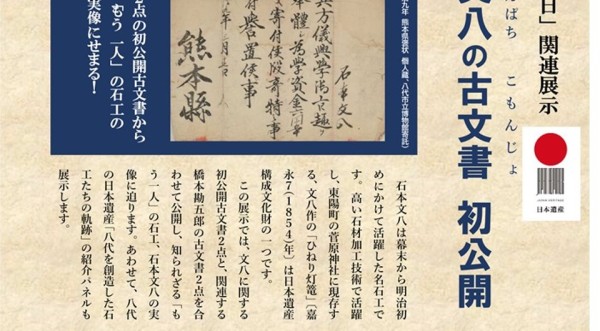 日」関連展示
文八の古文書 初公開
ぱち こもんじょ
日本遺産
九年 熊本県褒状 個人蔵、八代市立博物館寄託)
石本文八
為学資金
寄付候段奇特事
候事
熊本縣
2点の初公開古文書から
もう一人」の石工の
実像にせまる!
石本文八は幕末から明治初
めにかけて活躍した名石工で
す。高い石材加工技術で活躍
し、東陽町の菅原神社に現存す
る、文八作の「ひねり灯籠」(嘉
永7(1854)年)は日本遺産
構成文化財の一つです。
この展示では、文八に関する
初公開古文書2点と、関連する
橋本勘五郎の古文書2点を合
わせて公開し、知られざる「も
う一人」の石工、石本文八の実
像に迫ります。あわせて、八代
の日本遺産「八代を創造した石
工たちの軌跡」の紹介パネルも
展示します。